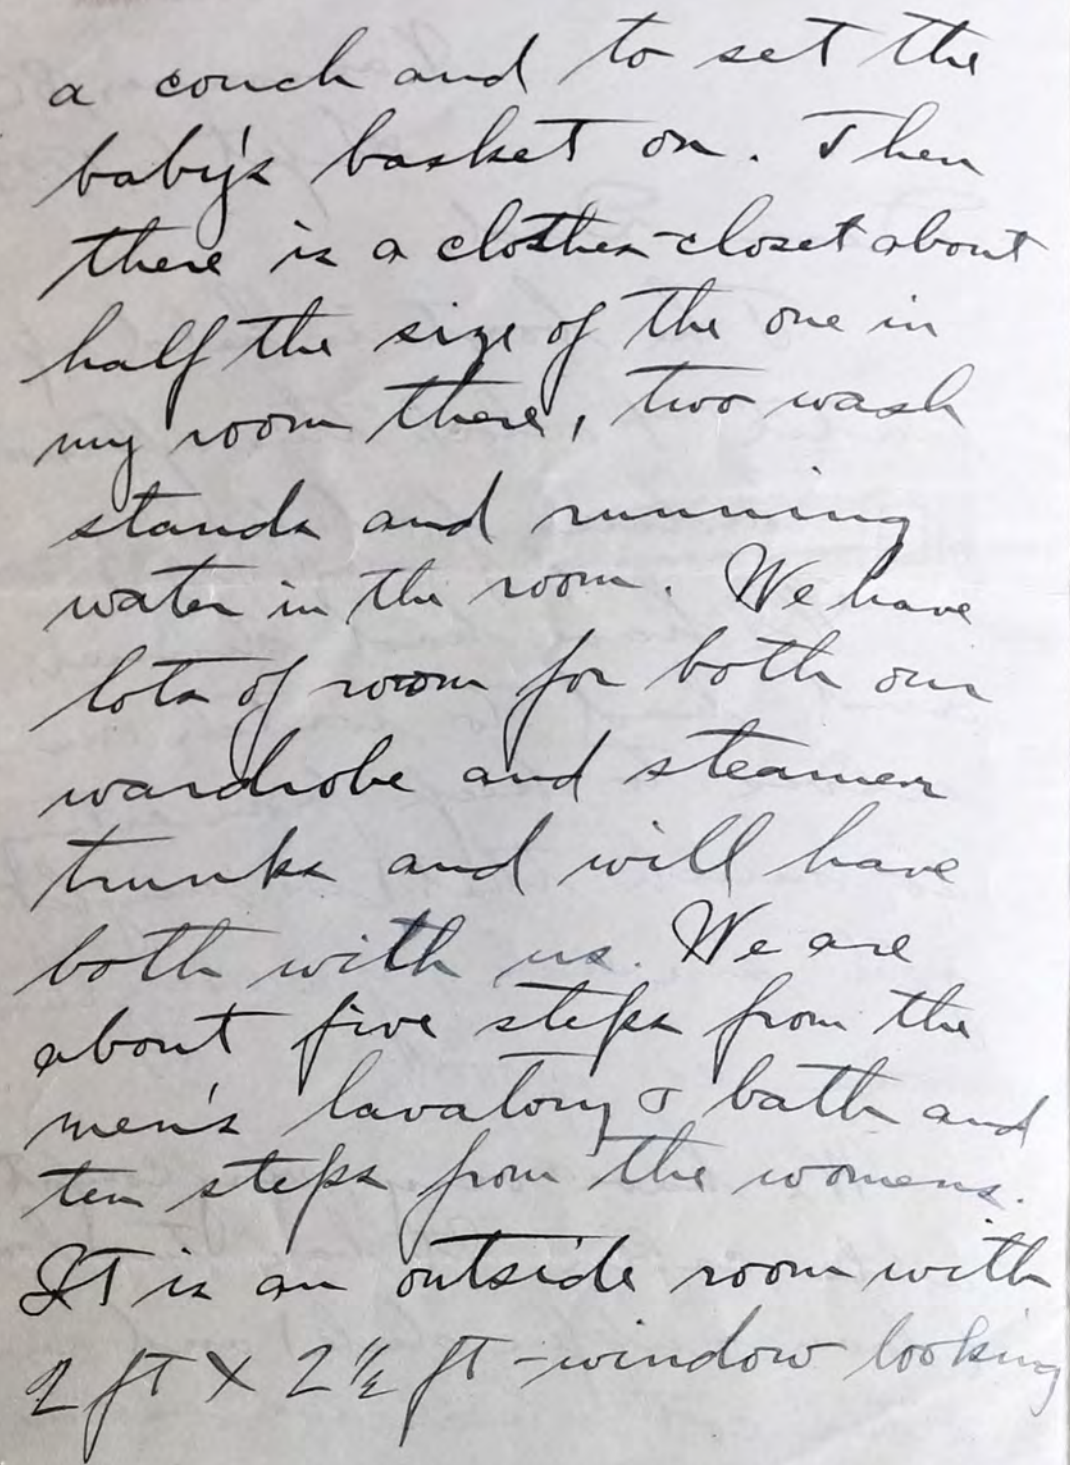 a couch and to set the
baby's basket on. Then
there is a clothes-closet about
half the size of the one in
my room there, two wash
stands and running
water in the room. We have
lots of room for both our
wardrobe and steamer
trunks and will have
both with us. We are
about five steps from the
men's lavatory & bath and
ten steps from the womens.
It is an outside room with
2 ft X 2 1/2 ft-window looking